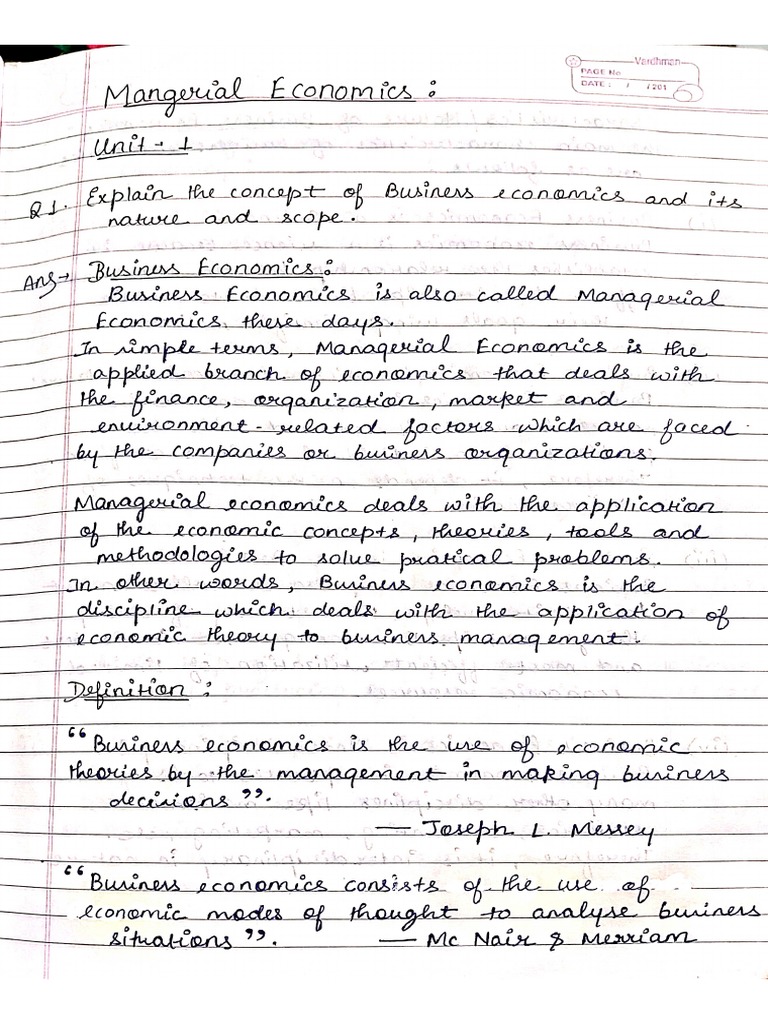 Vardhman
PAGE No
DATE : / /201
Mangerial Economics :
Unit - 1
Q1. Explain the concept of Business economics and its
nature and scope.
Ans→ Business Economics :
Business Economics is also called Managerial
Economics these days.
In simple terms, Managerial Economics is the
applied branch of economics that deals with
the finance, organization, market and
environment-related factors which are faced
by the companies or business organizations.
Managerial economics deals with the application
of the economic concepts, theories, tools and
methodologies to solve pratical problems.
In other words, Business economics is the
discipline which deals with the application of
economic theory to business management.
Definition :
“Business economics is the use of economic
theories by the management in making business
decisions”.
— Joseph L. Messey
“Business economics consists of the use of
economic modes of thought to analyse business
situations”. — Mc Nair & Merriam